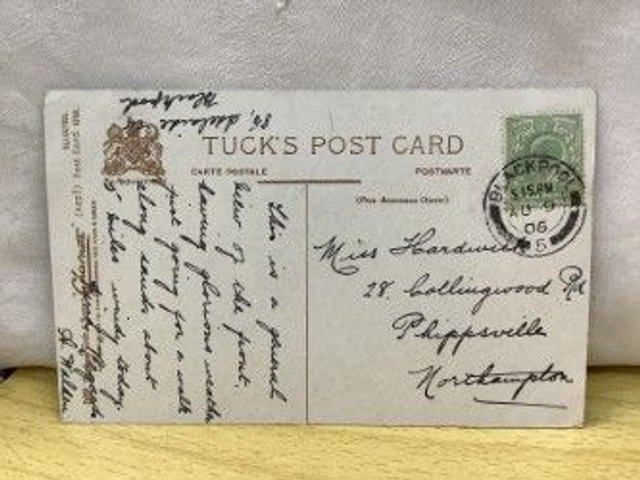 86, Adelaide St
Blackpool
TUCK'S POST CARD
CARTE POSTALE
POSTKARTE
(For Address Only)
BLACKPOOL
5.15 PM
AU 9
06
5
Miss Hardwick
28 Collingwood Rd
Phippsville
Northampton
This is a general
view of the front.
having glorious weather
just going for a walk
along sands about
8 miles windy today.